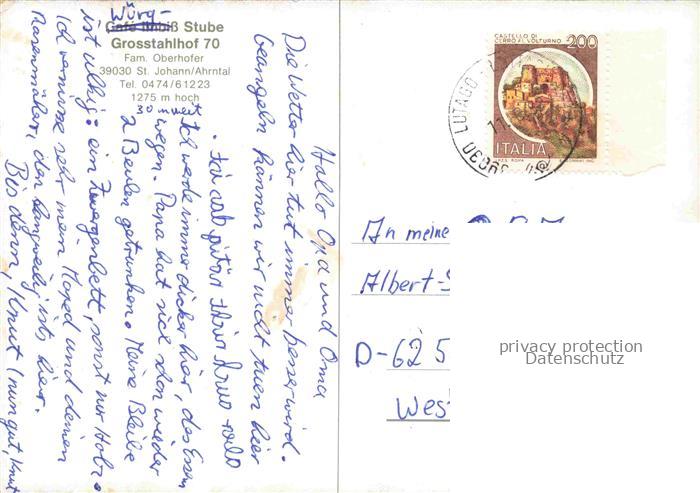 Würg-
Café Imbiß Stube
Grosstahlhof 70
Fam. Oberhofer
39030 St. Johann/Ahrntal
Tel. 0474/61223
1275 m hoch
Hallo Opa und Oma
Die Wetter hier tut immer besser wird.
beangeln können wir nicht tuen hier
Ich werde immer dicker hier, des Essen
wegen. Papa hat sich schon wieder
2 Beulen getrunken. Meine Bleibe
ist ulkig: ein Zwergenbett, sonst nur Holz.
Ich vermisse sehr mein Moped und deinen
Rasenmäher, den langweilig ists hier.
Bis denn, Knut (nun gut, Knut
CASTELLO DI
CERRO AL VOLTURNO
200
ITALIA
I.P.Z.S. ROMA
LUTAGO
An meine
Albert-S
D-62 5
Wes
privacy protection
Datenschutz